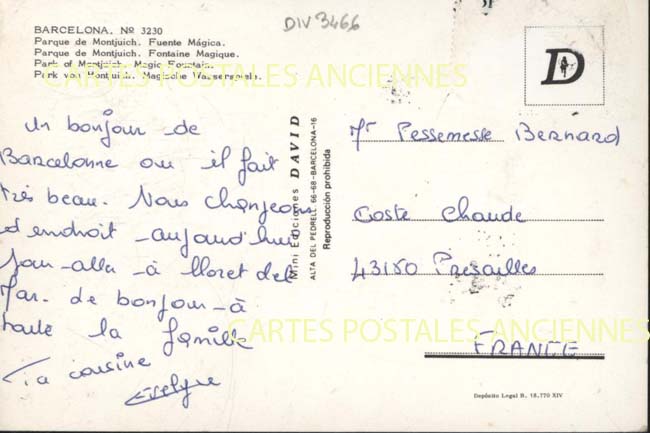 DIV 3466
BARCELONA. Nº 3230
Parque de Montjuich. Fuente Mágica.
Parque de Montjuich. Fontaine Magique.
Park of Montjuich. Magic Fountain.
Park von Montjuich. Magische Wasserspiels.
CARTES POSTALES ANCIENNES
D
Un bonjour de
Barcelonne ou il fait
très beau. Nous changeons
d'endroit aujourd'hui
pour aller à lloret del
Mar. de bonjour à
toute la famille
Ta cousine
Evelyne
Mini Ediciones DAVID
ALTA DEL PEDRELL, 66-68-BARCELONA-16
Reproducción prohibida
Mr Pessemesse Bernard
Coste Chaude
43150 Presailles
FRANCE
CARTES POSTALES ANCIENNES
Depósito Legal B. 18.770 XIV